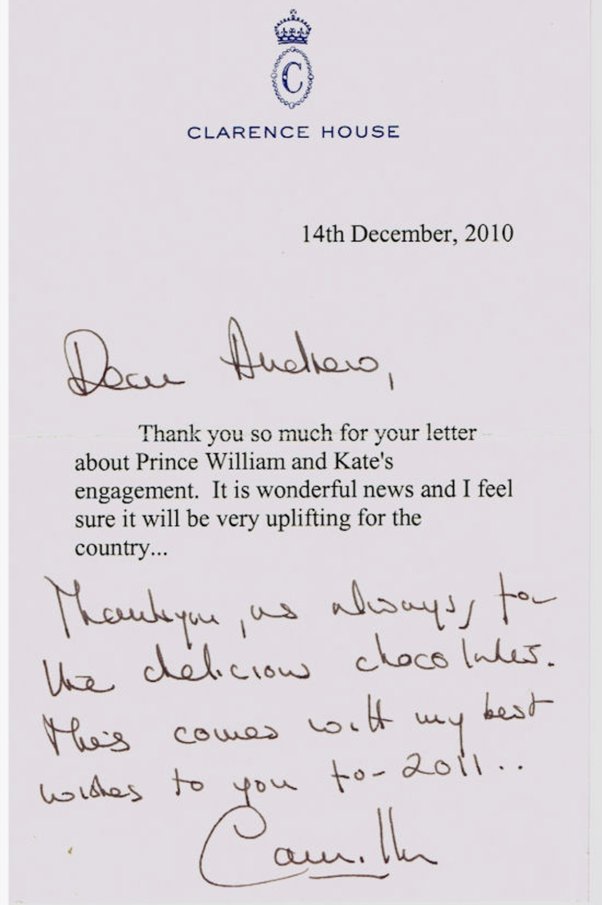 C
CLARENCE HOUSE
14th December, 2010
Dear Andrew,
Thank you so much for your letter
about Prince William and Kate's
engagement. It is wonderful news and I feel
sure it will be very uplifting for the
country...
Thankyou, as always, for
the delicious chocolates.
This comes with my best
wishes to you for 2011..
Camilla